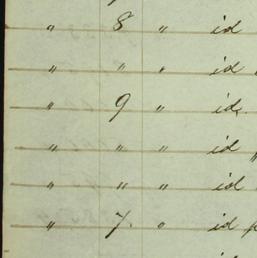 " 8 " id
" " " id
" 9 " id.
" " " id "
" " " id
" 7. " id